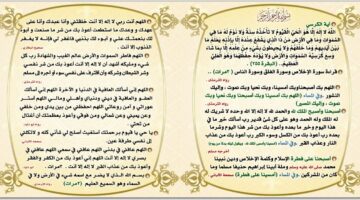 بسم الله الرحمن الرحيم
آية الكرسي
اللَّهُ لَا إِلَهَ إِلَّا هُوَ الْحَيُّ الْقَيُّومُ لَا تَأْخُذُهُ سِنَةٌ وَلَا نَوْمٌ لَهُ مَا فِي
السَّمَوَاتِ وَمَا فِي الْأَرْضِ مَنْ ذَا الَّذِي يَشْفَعُ عِنْدَهُ إِلَّا بِإِذْنِهِ يَعْلَمُ مَا
بَيْنَ أَيْدِيهِمْ وَمَا خَلْفَهُمْ وَلَا يُحِيطُونَ بِشَيْءٍ مِنْ عِلْمِهِ إِلَّا بِمَا شَاءَ
وَسِعَ كُرْسِيُّهُ السَّمَوَاتِ وَالْأَرْضَ وَلَا يَئُودُهُ حِفْظُهُمَا وَهُوَ الْعَلِيُّ
الْعَظِيمُ
قراءة سورة الإخلاص وسورة الفلق وسورة الناس
اللهم بك أصبحنا وبك أمسينا، وبك نحيا وبك نموت، وإليك
النشور
أصبحنا وأصبح الملك لله والحمد لله لا إله إلا الله وحده لا شريك له
له الملك وله الحمد وهو على كل شيء قدير رب أسألك خير ما في
هذا اليوم وخير ما بعده وأعوذ بك من شر هذا اليوم وشر ما
بعده رب أعوذ بك من الكسل وسوء الكبر رب أعوذ بك من عذاب
في النار وعذاب في القبر
أصبحنا على فطرة الإسلام وكلمة الإخلاص ودين نبينا
محمد وملة أبينا إبراهيم حنيفا مسلما وما
كان من المشركين
اللهم أنت ربي لا إله إلا أنت خلقتني وأنا عبدك وأنا على
عهدك ووعدك ما استطعت أعوذ بك من شر ما صنعت أبوء
لك بنعمتك علي وأبوء لك بذنبي فاغفر لي فإنه لا يغفر
الذنوب إلا أنت
اللهم فاطر السموات والأرض عالم الغيب والشهادة رب كل
شيء ومليكه أشهد أن لا إله إلا أنت أعوذ بك من شر نفسي
وشر الشيطان وشركه وأن أقترف على نفسي سوء أو أجره إلى مسلم
اللهم إني أسألك العافية في الدنيا والآخرة اللهم إني أسألك
العفو والعافية في ديني ودنياي وأهلي ومالي اللهم استر
عوراتي وآمن روعاتي اللهم احفظني من بين يدي ومن خلفي
وعن يميني وعن شمالي ومن فوقي وأعوذ بعظمتك أن أغتال
من تحتي
يا حي يا قيوم برحمتك أستغيث أصلح لي شأني كله ولا تكلني
إلى نفسي طرفة عين
اللهم عافني في بدني اللهم عافني في سمعي اللهم عافني في
بصري لا إله إلا أنت اللهم إني أعوذ بك من الكفر والفقر
وأعوذ بك من عذاب القبر لا إله إلا أنت
بسم الله الذي لا يضر مع اسمه شيء في الأرض ولا في
السماء وهو السميع العليم